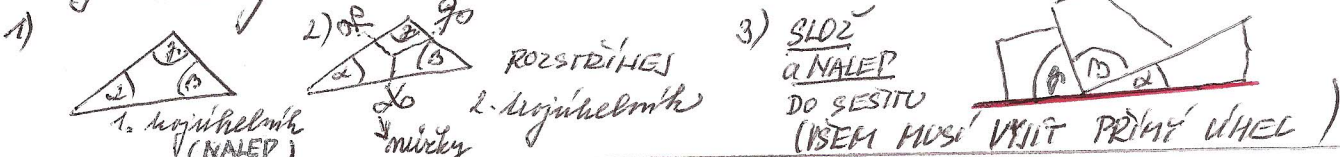 1)
α γ β
1. trojúhelník
(NALEP)
2)
α γ β
nůžky
ROZSTŘÍHEJ
2. trojúhelník
3) SLOŽ
a NALEP
DO SEŠITU
γ β α
(VŠEM MUSÍ VYJÍT PŘÍMÝ ÚHEL)